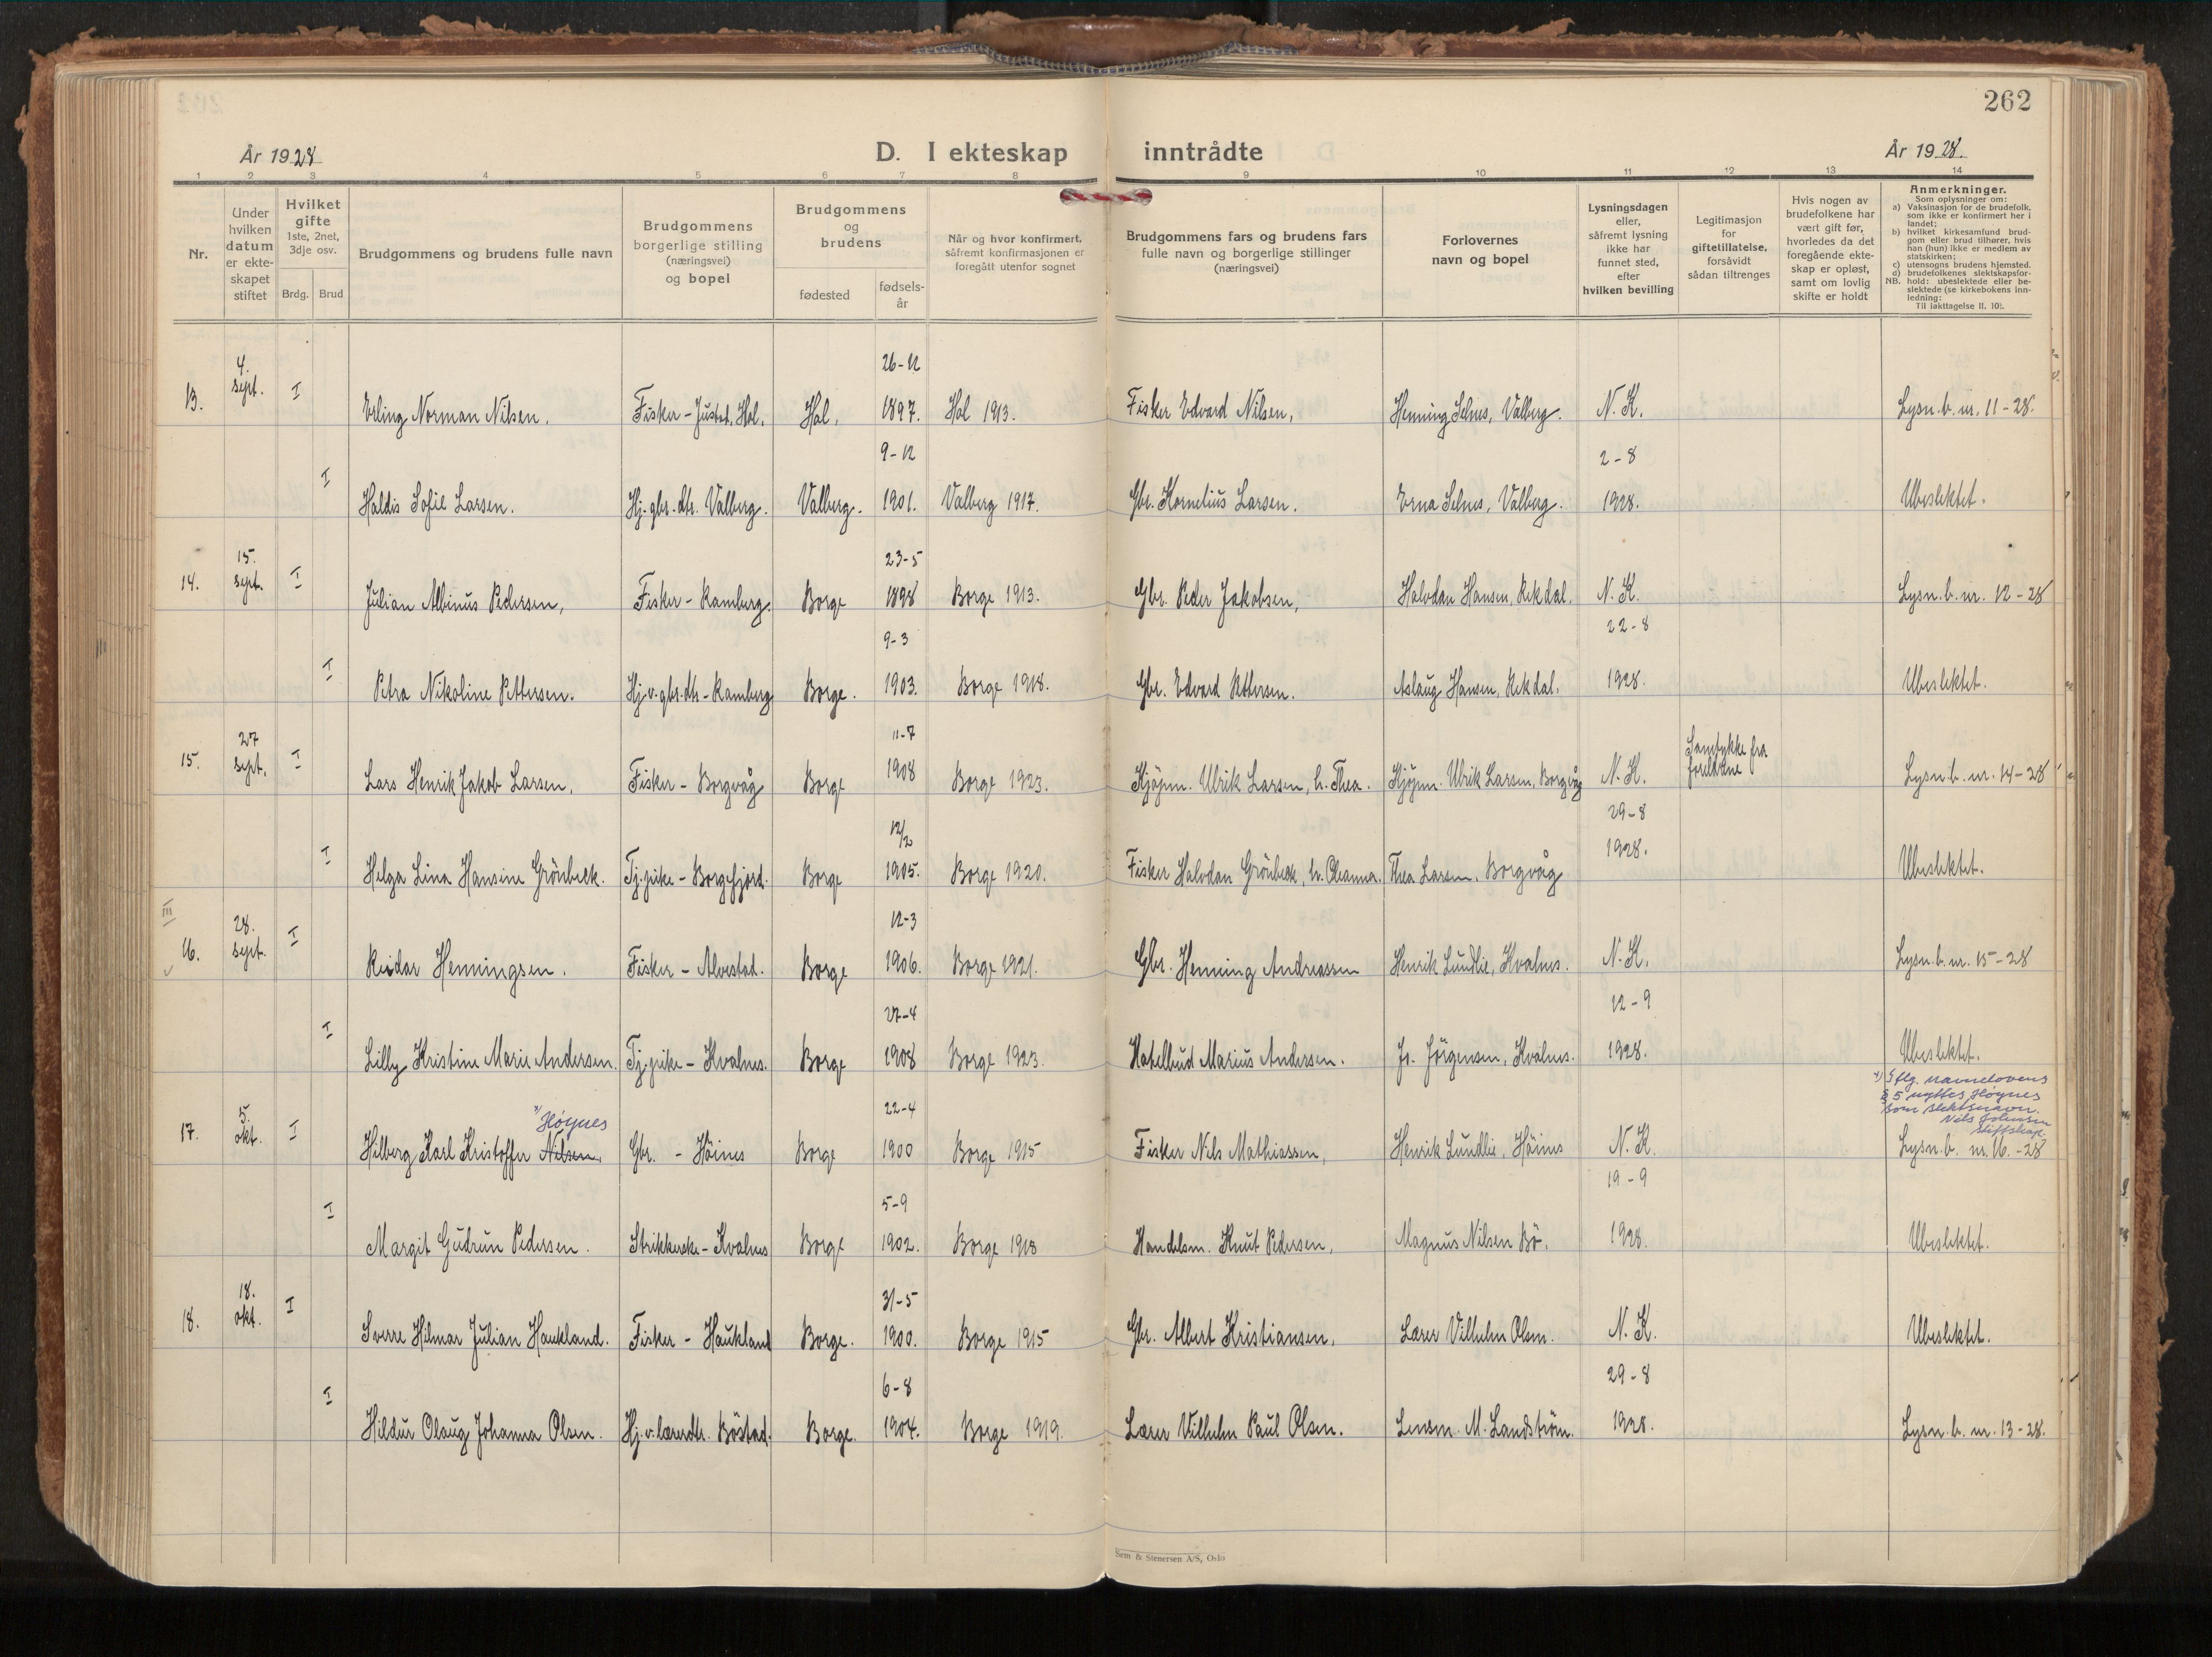 262
År 1928
D. I ekteskap inntrådte
År 1928.
1 2 3 4 5 6 7 8 9 10 11 12 13 14
Nr.
Under hvilken datum er ekteskapet stiftet
Hvilket gifte
1ste, 2net, 3dje osv.
Brdg. Brud
Brudgommens og brudens fulle navn
Brudgommens borgerlige stilling (næringsvei) og bopel
Brudgommens og brudens
fødested
fødselsår
Når og hvor konfirmert, såfremt konfirmasjonen er foregått utenfor sognet
Brudgommens fars og brudens fars fulle navn og borgerlige stillinger (næringsvei)
Forlovernes navn og bopel
Lysningsdagen eller, såfremt lysning ikke har funnet sted, efter hvilken bevilling
Legitimasjon for giftetillatelse, forsåvidt sådan tiltrenges
Hvis nogen av brudefolkene har vært gift før, hvorledes da det foregående ekteskap er opløst, samt om lovlig skifte er holdt
Anmerkninger.
Som oplysninger om:
a) Vaksinasjon for de brudefolk, som ikke er konfirmert her i landet;
b) hvilket kirkesamfund brudgom eller brud tilhører, hvis han (hun) ikke er medlem av statskirken;
c) utensogns brudens hjemsted.
d) brudefolkenes slektskapsforhold: ubeslektede eller beslektede (se kirkebokens innledning:
NB.
Til iakttagelse II. 10).
13. 4. sept. I Erling Norman Nilsen. Fisker - Justad, Hol. Hol. 26-12 1897. Hol 1913. Fisker Edvard Nilsen, Henning Selnes, Valberg. N. K. Lysn. b. nr. 11-28.
I Haldis Sofie Larsen. Hj. gbr. dtr. Valberg. Valberg. 9-12 1901. Valberg 1917. Gbr. Kornelius Larsen. Erna Selnes, Valberg. 2-8 1928. Ubeslektet.
14. 15. sept. I Julian Albinus Pedersen, Fisker - Ramberg. Borge 23-5 1898 Borge 1913. Gbr. Peder Jakobsen, Halvdan Hansen, Rekdal. N. K. Lysn. b. nr. 12-28
I Petra Nikoline Pettersen. Hj.v. gbr. dtr - Ramberg Borge. 9-3 1903. Borge 1918. Gbr. Edvard Pettersen. Aslaug Hansen, Rekdal. 22-8 1928. Ubeslektet.
15. 27 sept. I Lars Henrik Jakob Larsen. Fisker - Borgvåg Borge 11-7 1908 Borge 1923. Kjøpm. Ulrik Larsen, h. Thea. Kjøpm. Ulrik Larsen, Borgvåg N. K. Samtykke fra foreldrene Lysn. b. nr. 14-28
I Helga Lina Hansine Grönbeck. Tj. pike - Borgefjord. Borge 12/2 1905. Borge 1920. Fisker Halvdan Grönbeck, h. Oleanna. Thea Larsen, Borgvåg 29-8 1928. Ubeslektet.
III
16. 28. sept. I Reidar Henningsen. Fisker - Alvestad. Borge 12-3 1906. Borge 1921. Gbr. Henning Andreassen Henrik Lundlie, Kvalnes. N. K. Lysn. b. nr. 15-28
I Lilly Kristine Marie Andersen. Tj. pike - Kvalnes. Borge 27-4 1908 Borge 1923. Hotellbud Marius Andersen. Jo. Jörgensen, Kvalnes. 12-9 1928. Ubeslektet.
x) Iflg. navnelovens § 5 nyttes Høynes som slektsnavn. Nils Johnsen stiftskap.
x) Høynes
17. 5. okt. I Hilberg Karl Kristoffer Nilsen, Gbr. - Höines Borge 22-4 1900 Borge 1915 Fisker Nils Mathiassen, Henrik Lundlie, Höines N. K. Lysn. b. nr. 16.-28
I Margit Gudrun Pedersen. Strikkerske - Kvalnes Borge 5-9 1902. Borge 1918 Handelsm. Knut Pedersen, Magnus Nilsen Bö. 19-9 1928. Ubeslektet.
18. 18. okt. I Sverre Hilmar Julian Haukland. Fisker - Haukland Borge. 31-5 1900. Borge 1915 Gbr. Albert Kristiansen, Lærer Vilhelm Olsen. N. K. Ubeslektet.
I Hildur Olaug Johanna Olsen. Hj.v. lærerdtr. Böstad. Borge. 6-8 1904. Borge 1919. Lærer Vilhelm Paul Olsen. Lensm. M. Landström. 29-8 1928. Lysn. b. nr. 13-28.
Sem & Stenersen A/S, Oslo